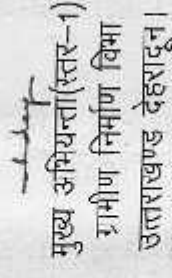 मुख्य अभियन्ता(स्तर–1)
ग्रामीण निर्माण विभा
उत्तराखण्ड देहरादून।